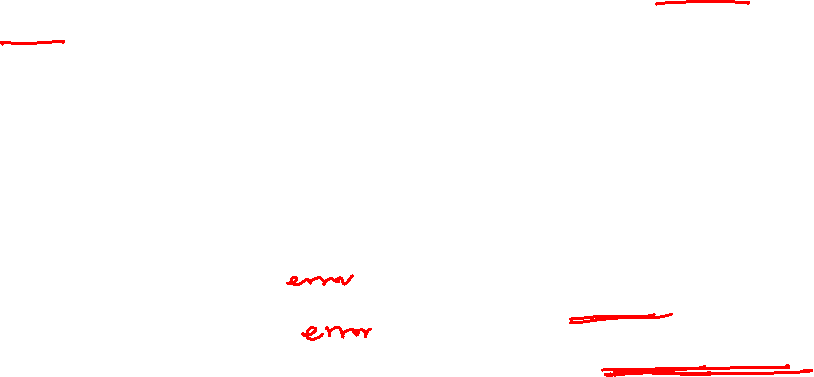 error
error